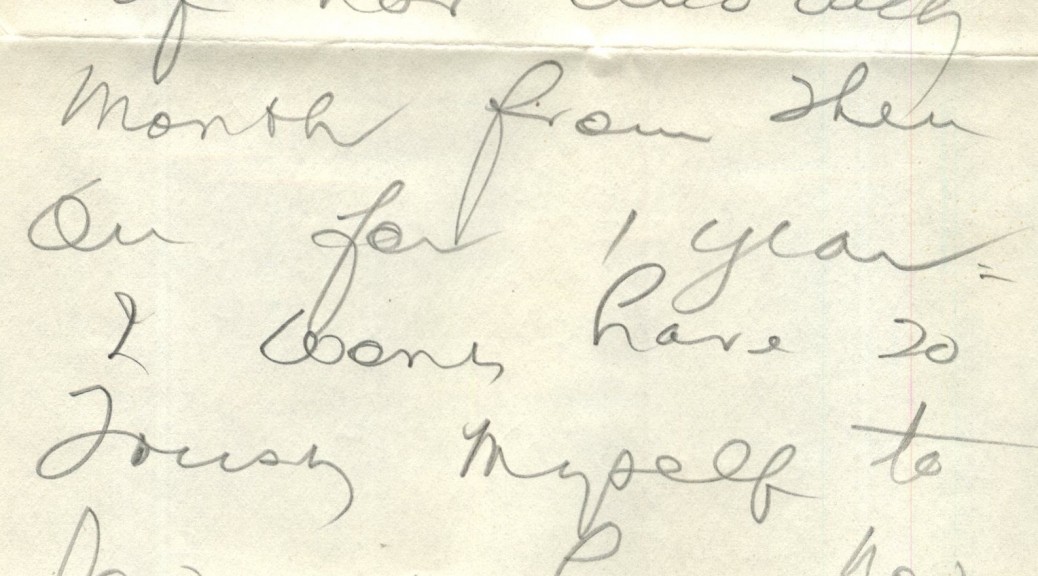 of
Month from then
On for 1 year =
I wont have to
Trust Myself to